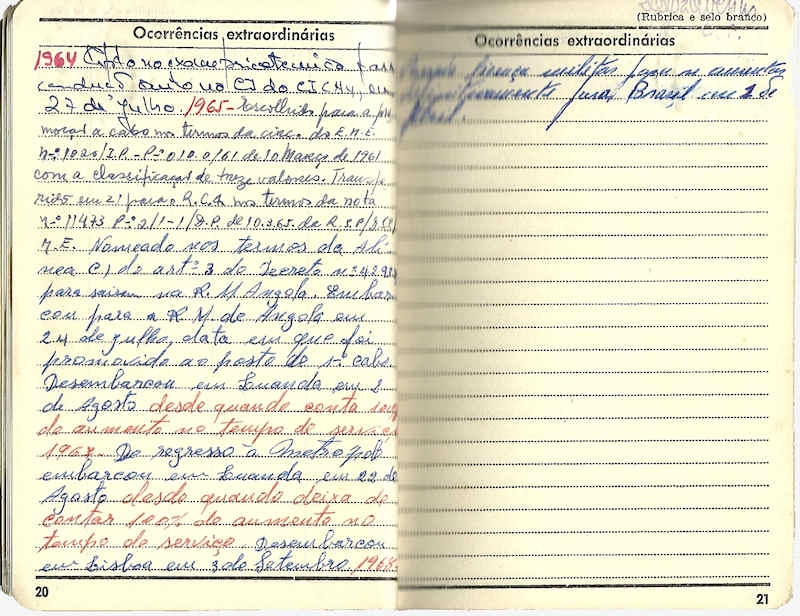 Ocorrências extraordinárias
1964 exame psicotécnico para
conduct auto no C I do C.I.C.A.4, em
27 de Julho. 1965- Escolhido para a pro
moção a cabo nos termos da circ. do E.M.E.
nº 1020/I.P. - Pº 010.0/61 de 10 Março de 1961
com a classificação de treze valores. Transfe
rido em 21 para o R.C.A. nos termos da nota
nº 11473 Pº 2/1-1/S.P. de 10.3.65 da R.S.P./
M.E. Nomeado nos termos da Alí
nea C) do artº 3 do Decreto nº
para servir na R. M Angola. Embar
cou para a R M. de Angola em
24 de Julho, data em que foi
promovido ao posto de 1º cabo.
Desembarcou em Luanda em 2
de Agosto desde quando conta 100%
de aumento no tempo de serviço
De regresso à Metropole
embarcou em Luanda em 22 de
Agosto desde quando deixa de
contar 100% de aumento no
tempo de serviço. Desembarcou
em Lisboa em 3 de Setembro 1968-
20
(Rubrica e selo branco)
Ocorrências extraordinárias
licença militar para se ausentar
definitivamente para Brasil em 2 de
Abril.
21